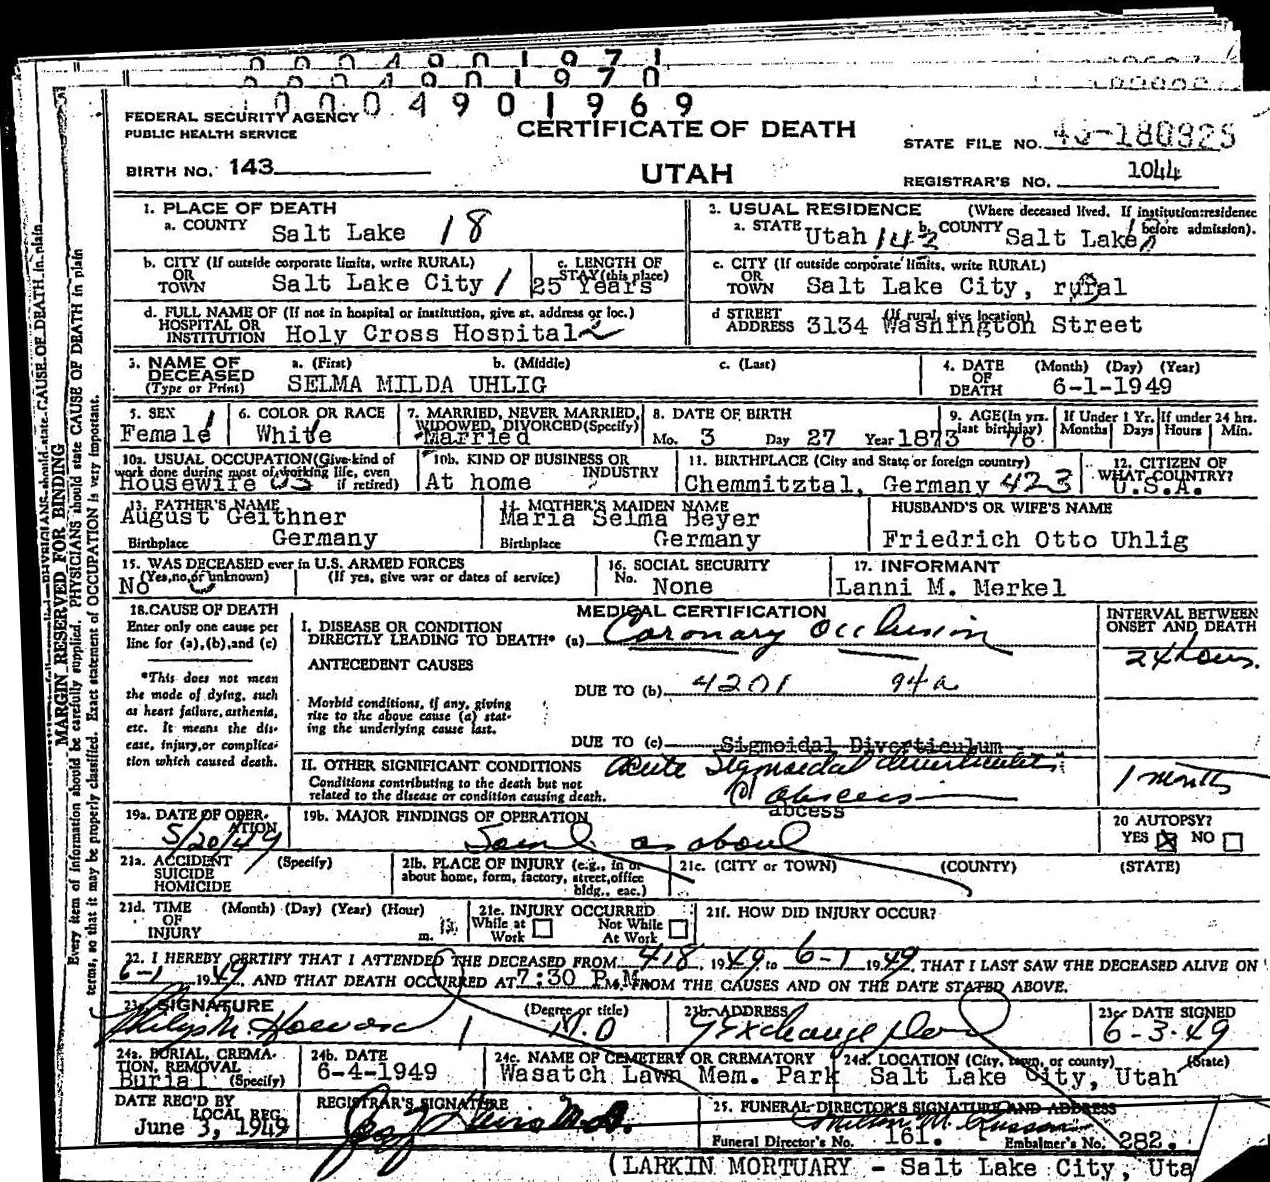 00004901971
00004901970
00004901969
FEDERAL SECURITY AGENCY
PUBLIC HEALTH SERVICE
CERTIFICATE OF DEATH
STATE FILE NO. 49-180925
BIRTH NO. 143
UTAH
REGISTRAR'S NO. 1044
1. PLACE OF DEATH
a. COUNTY Salt Lake 18
2. USUAL RESIDENCE (Where deceased lived. If institution: residence before admission).
a. STATE Utah 142 b. COUNTY Salt Lake
b. CITY (If outside corporate limits, write RURAL) OR TOWN Salt Lake City 1
c. LENGTH OF STAY (this place) 25 Years
c. CITY (If outside corporate limits, write RURAL) OR TOWN Salt Lake City, rural
d. FULL NAME OF (If not in hospital or institution, give st. address or loc.) HOSPITAL OR INSTITUTION Holy Cross Hospital
d STREET ADDRESS (If rural, give location) 3134 Washington Street
3. NAME OF DECEASED (Type or Print) a. (First) b. (Middle) c. (Last)
SELMA MILDA UHLIG
4. DATE OF DEATH (Month) (Day) (Year)
6-1-1949
5. SEX Female
6. COLOR OR RACE White
7. MARRIED, NEVER MARRIED, WIDOWED, DIVORCED (Specify) Married
8. DATE OF BIRTH Mo. 3 Day 27 Year 1873
9. AGE (In yrs. last birthday) 76
If Under 1 Yr. Months Days
If under 24 hrs. Hours Min.
10a. USUAL OCCUPATION (Give kind of work done during most of working life, even if retired) Housewife
10b. KIND OF BUSINESS OR INDUSTRY At home
11. BIRTHPLACE (City and State or foreign country)
Chemmitztal, Germany 423
12. CITIZEN OF WHAT COUNTRY? U.S.A.
13. FATHER'S NAME August Geithner
Birthplace Germany
14. MOTHER'S MAIDEN NAME Maria Selma Beyer
Birthplace Germany
HUSBAND'S OR WIFE'S NAME
Friedrich Otto Uhlig
15. WAS DECEASED ever in U.S. ARMED FORCES
(Yes, no, or unknown) (If yes, give war or dates of service)
No
16. SOCIAL SECURITY No. None
17. INFORMANT
Lanni M. Merkel
18. CAUSE OF DEATH
Enter only one cause per line for (a), (b), and (c)
*This does not mean the mode of dying, such as heart failure, asthenia, etc. It means the disease, injury, or complication which caused death.
MEDICAL CERTIFICATION
INTERVAL BETWEEN ONSET AND DEATH
I. DISEASE OR CONDITION DIRECTLY LEADING TO DEATH* (a) Coronary Occlusion
24 hours.
ANTECEDENT CAUSES
Morbid conditions, if any, giving rise to the above cause (a) stating the underlying cause last.
DUE TO (b) 4201 94a
DUE TO (c) Sigmoidal Diverticulum
II. OTHER SIGNIFICANT CONDITIONS
Conditions contributing to the death but not related to the disease or condition causing death.
Acute Sigmoidal diverticulitis
abscess
abcess
1 month
19a. DATE OF OPERATION 5/20/49
19b. MAJOR FINDINGS OF OPERATION
Same as above
20 AUTOPSY?
YES ☒ NO ☐
21a. ACCIDENT SUICIDE HOMICIDE (Specify)
21b. PLACE OF INJURY (e.g., in or about home, form, factory, street, office bldg., eac.)
21c. (CITY OR TOWN) (COUNTY) (STATE)
21d. TIME OF INJURY (Month) (Day) (Year) (Hour) m.
21e. INJURY OCCURRED
While at Work ☐ Not While At Work ☐
21f. HOW DID INJURY OCCUR?
22. I HEREBY CERTIFY THAT I ATTENDED THE DECEASED FROM 4/8, 1949 to 6-1 1949, THAT I LAST SAW THE DECEASED ALIVE ON
6-1 1949, AND THAT DEATH OCCURRED AT 7:30 P.M. M., FROM THE CAUSES AND ON THE DATE STATED ABOVE.
23a. SIGNATURE (Degree or title) M.D
23b. ADDRESS 9 Exchange Place
23c. DATE SIGNED 6-3-49
24a. BURIAL, CREMATION, REMOVAL (Specify) Burial
24b. DATE 6-4-1949
24c. NAME OF CEMETERY OR CREMATORY
Wasatch Lawn Mem. Park
24d. LOCATION (City, town, or county) (State)
Salt Lake City, Utah
DATE REC'D BY LOCAL REG.
June 3, 1949
REGISTRAR'S SIGNATURE
25. FUNERAL DIRECTOR'S SIGNATURE AND ADDRESS
Funeral Director's No. 161. Embalmer's No. 282.
(LARKIN MORTUARY - Salt Lake City, Uta
MARGIN RESERVED FOR BINDING
Every item of information should be carefully supplied. PHYSICIANS should state CAUSE OF DEATH in plain
terms, so that it may be properly classified. Exact statement of OCCUPATION is very important.